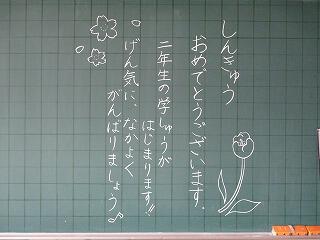 しんきゅう
おめでとうございます.
二年生の学しゅうが
はじまります!!
げん気に、なかよく
がんばりましょう♪